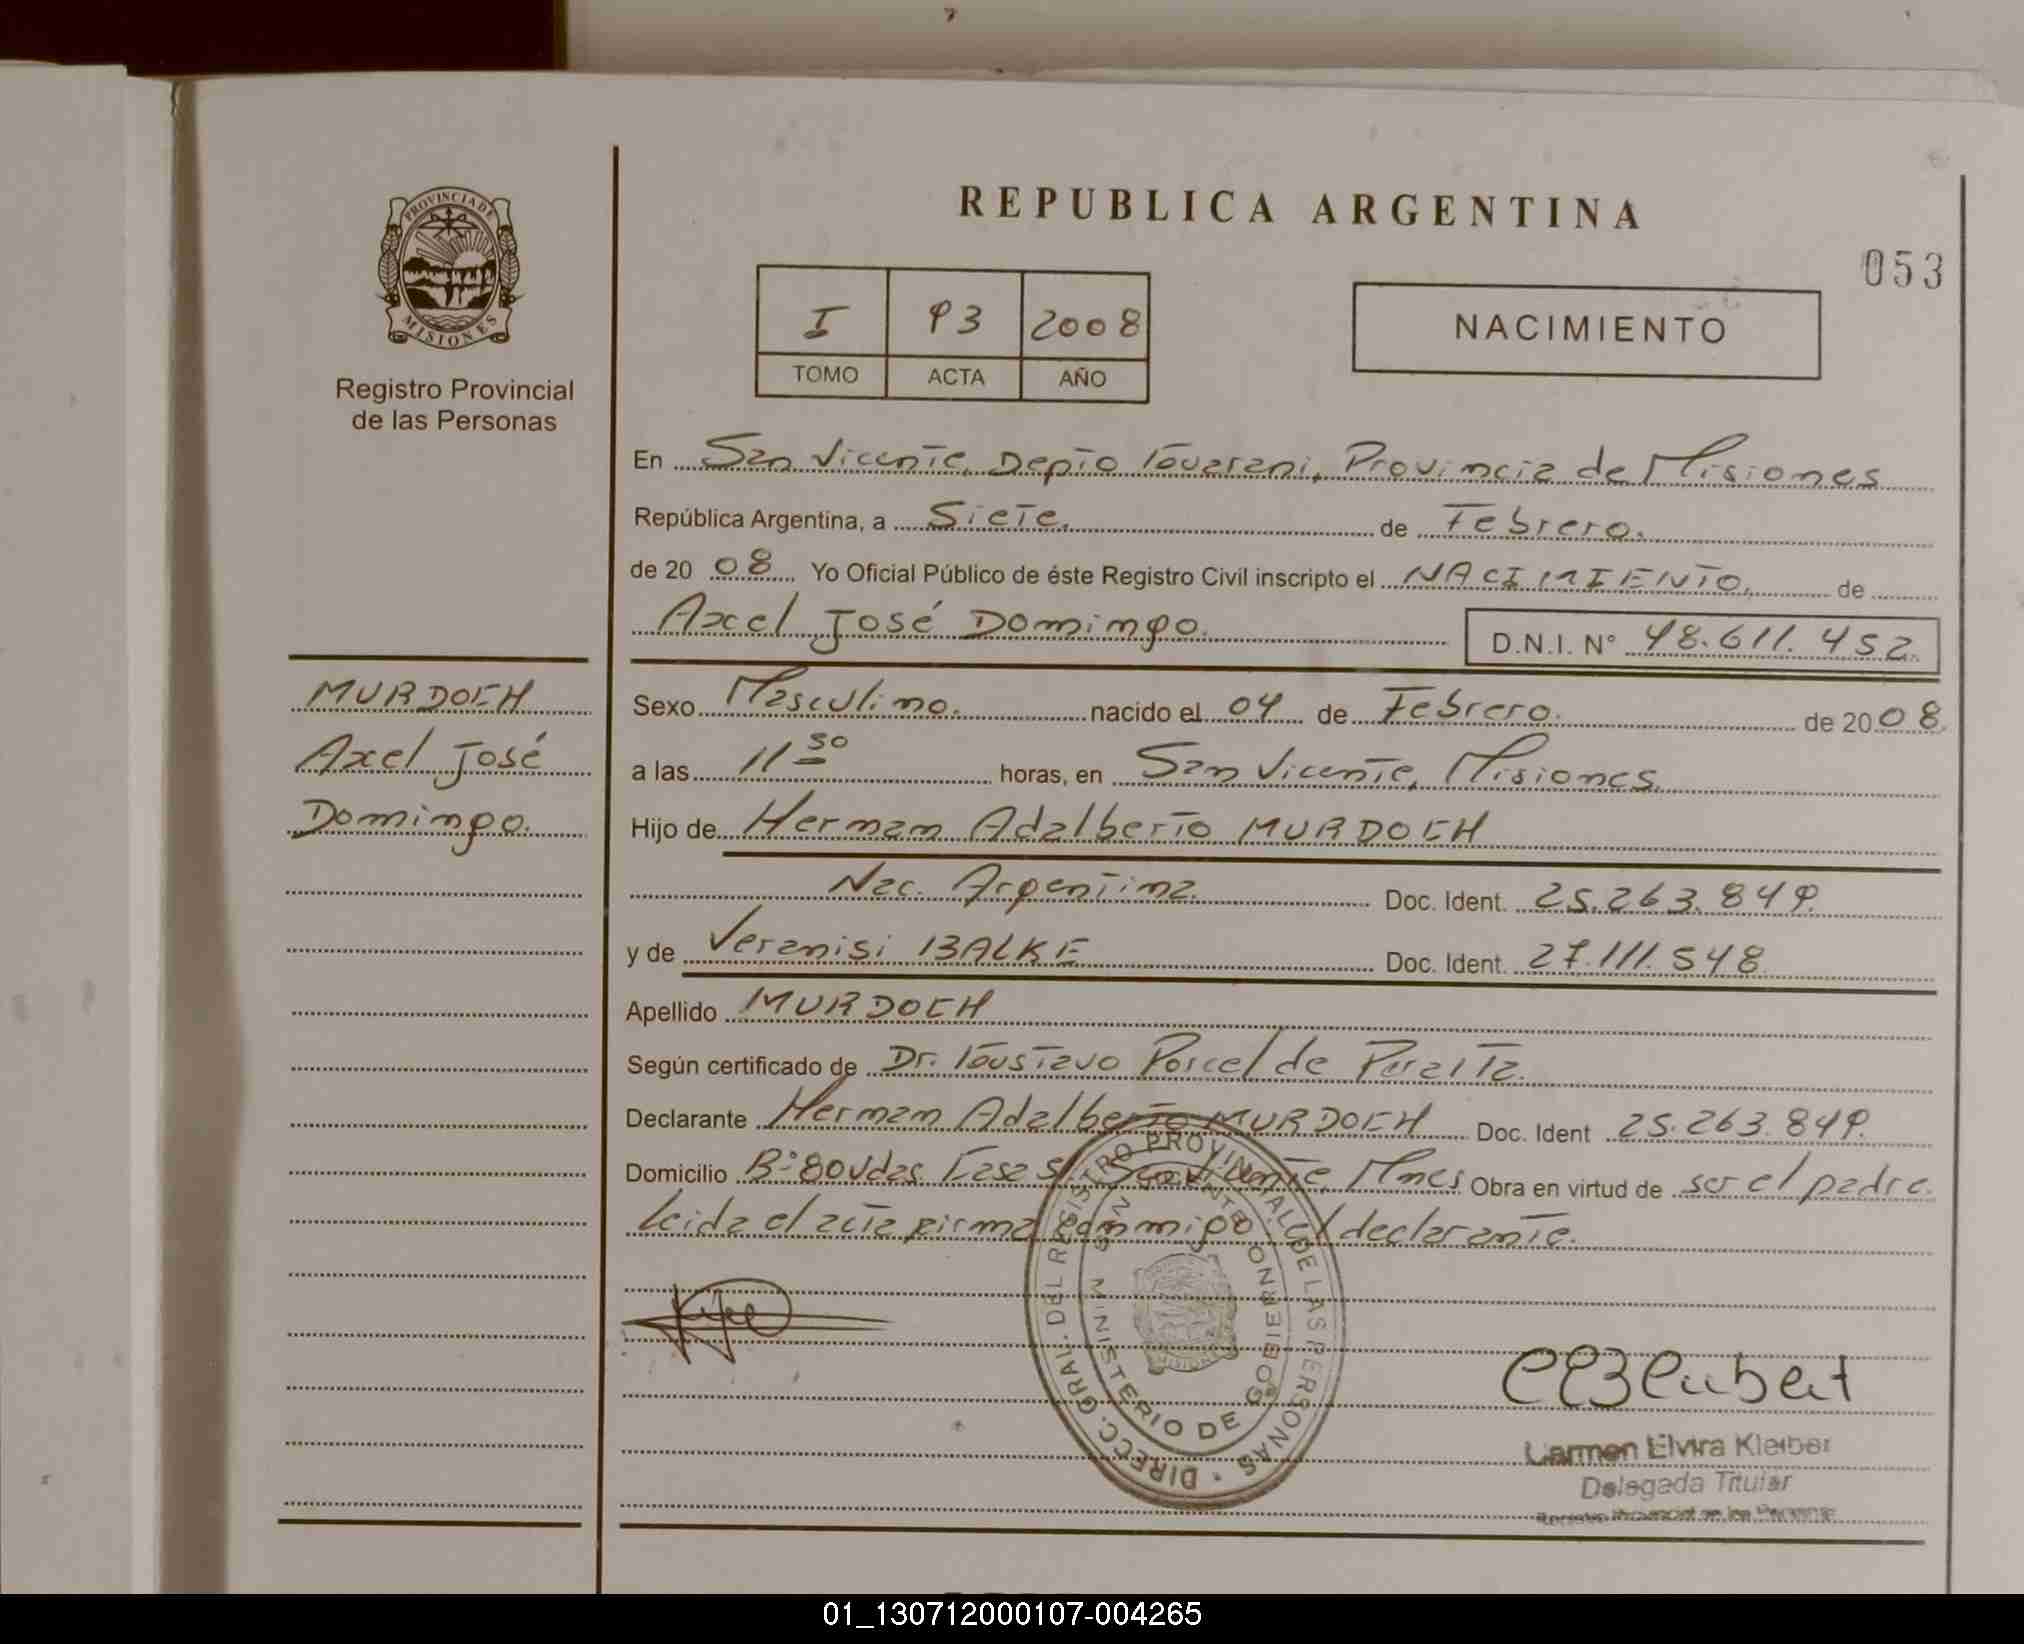 PROVINCIA DE
MISIONES
Registro Provincial
de las Personas
REPUBLICA ARGENTINA
053
I 93 2008
TOMO ACTA AÑO
NACIMIENTO
En San Vicente, Depto Guarani, Provincia de Misiones
República Argentina, a Siete. de Febrero.
de 20 08 Yo Oficial Público de éste Registro Civil inscripto el NACIMIENTO, de
Axel José Domingo. D.N.I. N° 48.611.452.
MURDOCH
Axel José
Domingo.
Sexo Masculino. nacido el 04 de Febrero. de 20 08.
a las 11 30 horas, en San Vicente, Misiones.
Hijo de Herman Adalberto MURDOCH
Nac. Argentina. Doc. Ident. 25.263.849.
y de Veranisi BALKE Doc. Ident. 27.111.548
Apellido MURDOCH
Según certificado de Dr. Gustavo Porcel de Peralta.
Declarante Herman Adalberto MURDOCH Doc. Ident 25.263.849.
Domicilio B° 80 Vdas. Casa 5, San Vicente, Mnes Obra en virtud de ser el padre.
Leida el acta firma conmigo el declarante.
DIRECC. GRAL. DEL REGISTRO PROVINCIAL DE LAS PERSONAS
SAN VICENTE
MINISTERIO DE GOBIERNO
MISIONES
Carmen Elvira Kleiber
Delegada Titular
Registro Provincial de las Personas
01_130712000107-004265